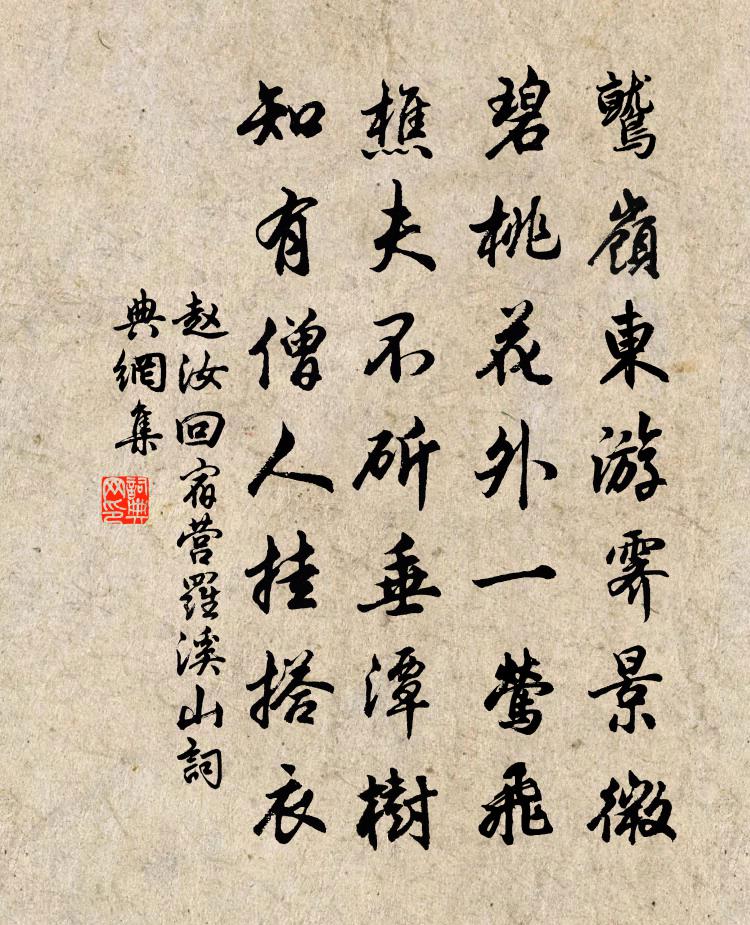 鷲嶺東游霽景微
碧桃花外一莺飛
樵夫不斫垂潭樹
知有僧人挂搭衣
赵汝回宿营羅溪山詞
典網集
詞典
网印